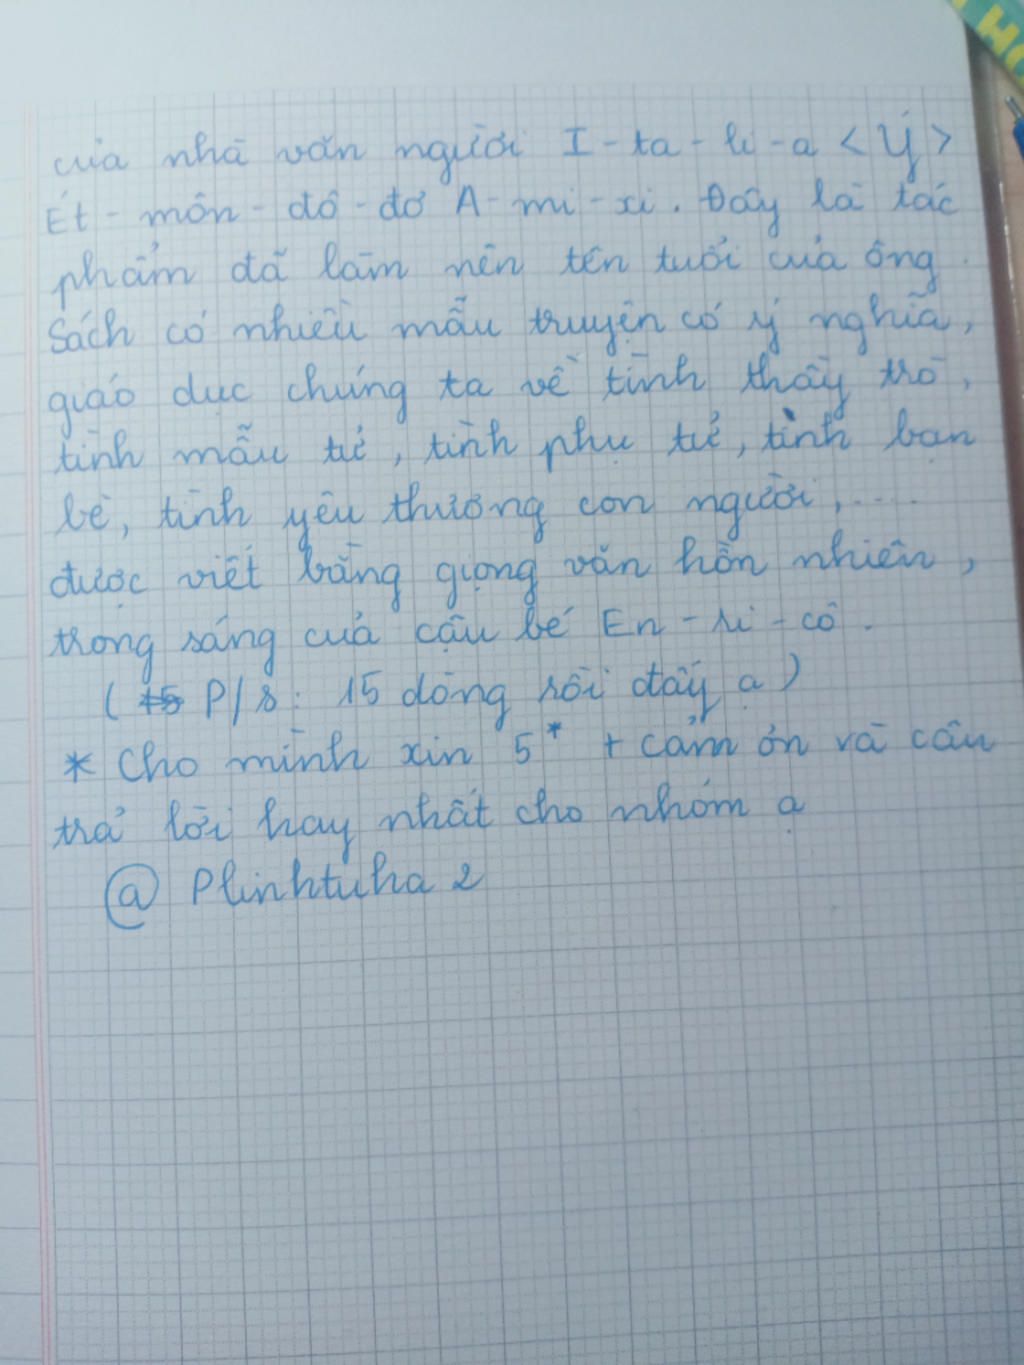 của nhà văn người I-ta-li-a <Ý>
Ét-môn-đô-đơ A-mi-xi. Đây là tác
phẩm đã làm nên tên tuổi của ông.
Sách có nhiều mẫu truyện có ý nghĩa,
giáo dục chúng ta về tình thầy trò,
tình mẫu tử, tình phụ tử, tình bạn
bè, tình yêu thương con người,....
được viết bằng giọng văn hồn nhiên,
trong sáng của cậu bé En-ri-cô.
( P/s: 15 dòng rồi đấy ạ)
* Cho mình xin 5* + cảm ơn và câu
trả lời hay nhất cho nhóm ạ
@ Plinhtuha2